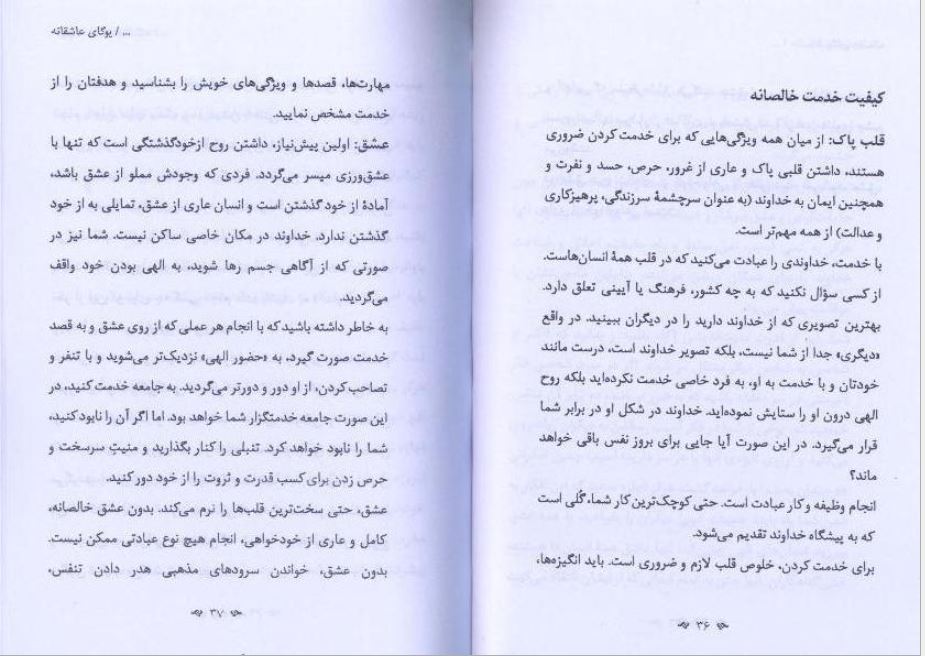 کیفیت خدمت خالصانه
قلب پاک: از میان همه ویژگی‌هایی که برای خدمت کردن ضروری
هستند، داشتن قلبی پاک و عاری از غرور، حرص، حسد و نفرت و
همچنین ایمان به خداوند (به عنوان سرچشمهٔ سرزندگی، پرهیزکاری
و عدالت) از همه مهم‌تر است.
با خدمت، خداوندی را عبادت می‌کنید که در قلب همهٔ انسان‌هاست.
از کسی سؤال نکنید که به چه کشور، فرهنگ یا آیینی تعلق دارد.
بهترین تصویری که از خداوند دارید را در دیگران ببینید. در واقع
«دیگری» جدا از شما نیست، بلکه تصویر خداوند است، درست مانند
خودتان و با خدمت به او، به فرد خاصی خدمت نکرده‌اید بلکه روح
الهی درون او را ستایش نموده‌اید. خداوند در شکل او در برابر شما
قرار می‌گیرد. در این صورت آیا جایی برای بروز نفس باقی خواهد
ماند؟
انجام وظیفه و کار عبادت است. حتی کوچک‌ترین کار شما، گُلی است
که به پیشگاه خداوند تقدیم می‌شود.
برای خدمت کردن، خلوص قلب لازم و ضروری است. باید انگیزه‌ها،
۳۶
... / یوگای عاشقانه
مهارت‌ها، قصدها و ویژگی‌های خویش را بشناسید و هدفتان را از
خدمت مشخص نمایید.
عشق: اولین پیش‌نیاز، داشتن روح ازخودگذشتگی است که تنها با
عشق‌ورزی میسر می‌گردد. فردی که وجودش مملو از عشق باشد،
آمادهٔ از خود گذشتن است و انسان عاری از عشق، تمایلی به از خود
گذشتن ندارد. خداوند در مکان خاصی ساکن نیست. شما نیز در
صورتی که از آگاهی جسم رها شوید، به الهی بودن خود واقف
می‌گردید.
به خاطر داشته باشید که با انجام هر عملی که از روی عشق و به قصد
خدمت صورت گیرد، به «حضور الهی» نزدیک‌تر می‌شوید و با تنفر و
تصاحب کردن، از او دور و دورتر می‌گردید. به جامعه خدمت کنید، در
این صورت جامعه خدمتگزار شما خواهد بود. اما اگر آن را نابود کنید،
شما را نابود خواهد کرد. تنبلی را کنار بگذارید و منیتِ سرسخت و
حرص زدن برای کسب قدرت و ثروت را از خود دور کنید.
عشق، حتی سخت‌ترین قلب‌ها را نرم می‌کند. بدون عشق خالصانه،
کامل و عاری از خودخواهی، انجام هیچ نوع عبادتی ممکن نیست.
بدون عشق، خواندن سرودهای مذهبی هدر دادن تنفس،
۳۷